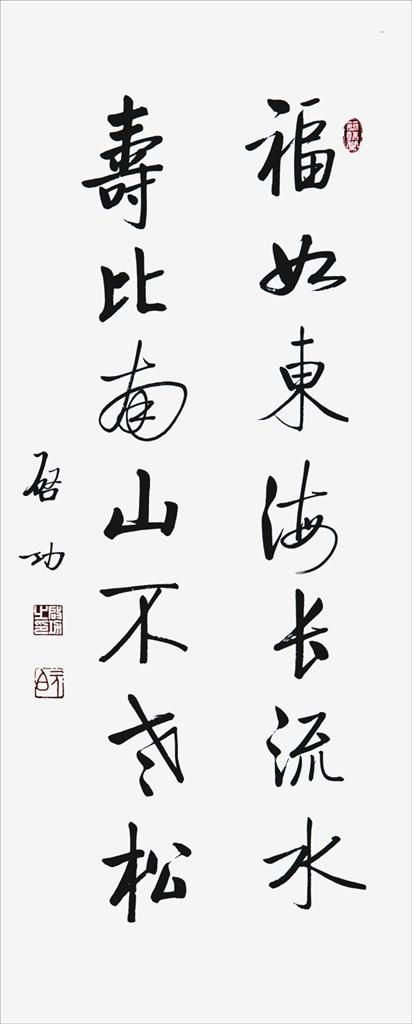 福如東海长流水
壽比南山不老松
启功